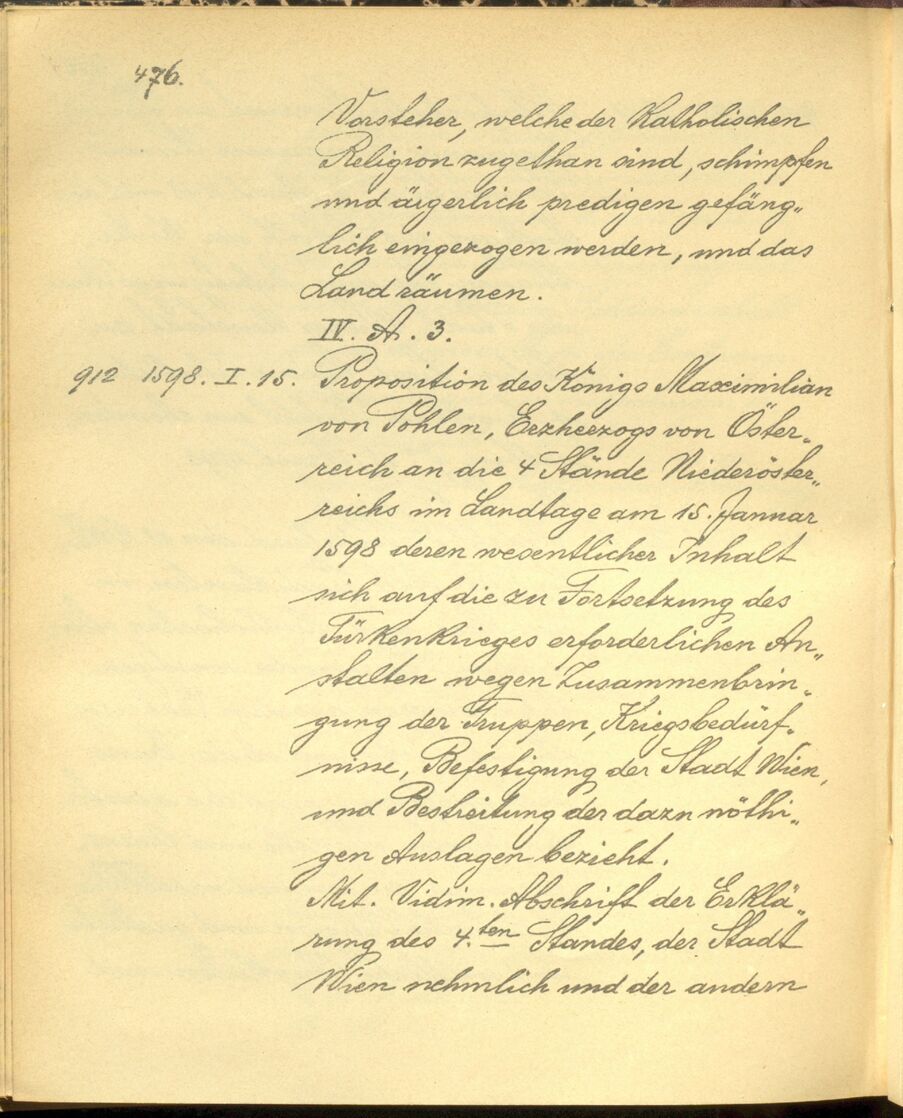 476.
Vorsteher, welche der Katholischen
Religion zugethan sind, schimpfen
und ärgerlich predigen gefäng„
lich eingezogen werden, und das
Land räumen.
IV. A. 3.
912 1598. I. 15. Proposition des Königs Maximilian
von Pohlen, Erzherzogs von Öster„
reich an die 4 Stände Niederöster„
reichs im Landtage am 15. Januar
1598 deren wesentlicher Inhalt
sich auf die zur Fortsetzung des
Türkenkrieges erforderlichen An„
stalten wegen Zusammenbrin„
gung der Truppen, Kriegsbedürf„
nisse, Befestigung der Stadt Wien,
und Bestreitung der dazu nöthi„
gen Auslagen bezieht.
Mit. Vidim. Abschrift der Erklä„
rung des 4.ten Standes, der Stadt
Wien nehmlich und der andern